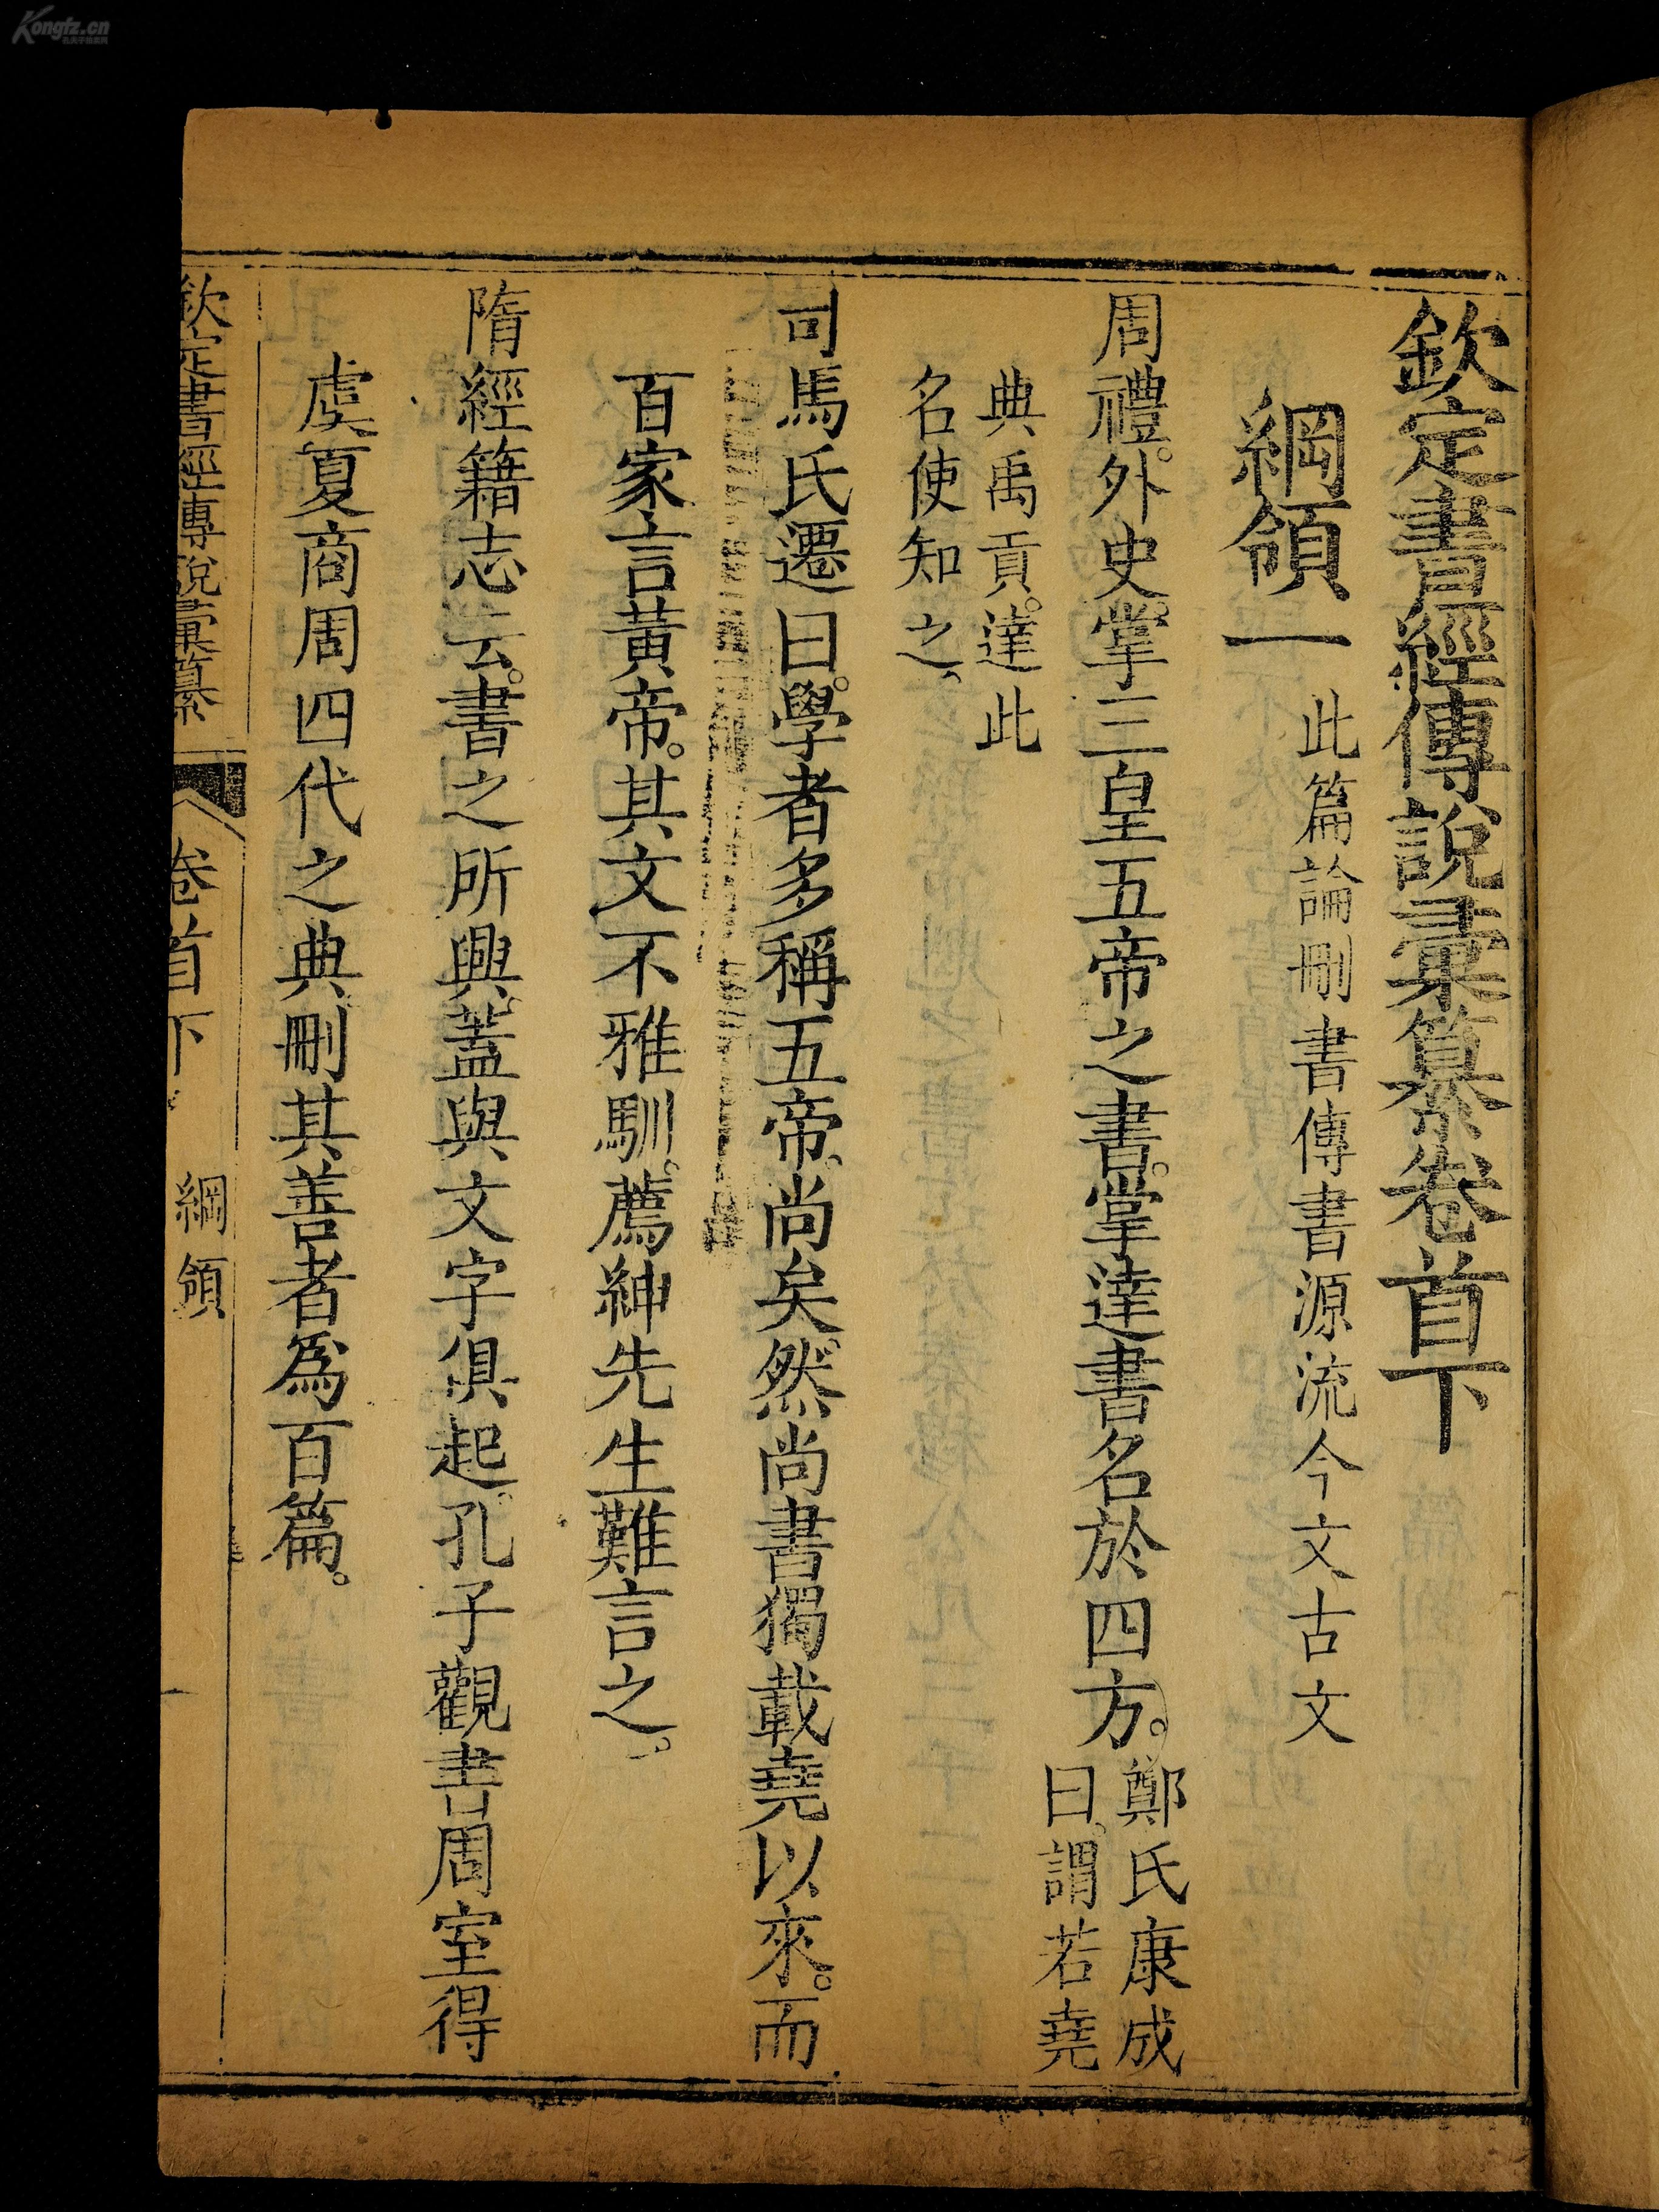 欽定書經傳說彙纂卷首下
綱領一 此篇論刪書傳書源流今文古文
周禮。外史。掌三皇五帝之書。掌達書名於四方。鄭氏康成
曰。謂若堯
典禹貢。達此
名使知之、
司馬氏遷曰。學者多稱五帝、尚矣。然尚書獨載堯以來。而
百家言黃帝。其文不雅馴。薦紳先生難言之。
隋經籍志云。書之所興。蓋與文字俱起。孔子觀書周室得
虞夏商周四代之典。刪其善者爲百篇。
欽定書經傳說彙纂 卷首下 綱領 一
Kongfz.cn
孔夫子舊書網